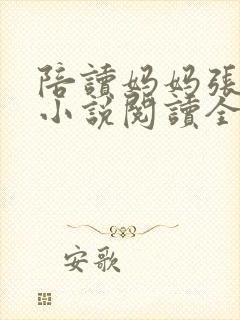 陪讀妈妈張
小說閱讀全
安歌